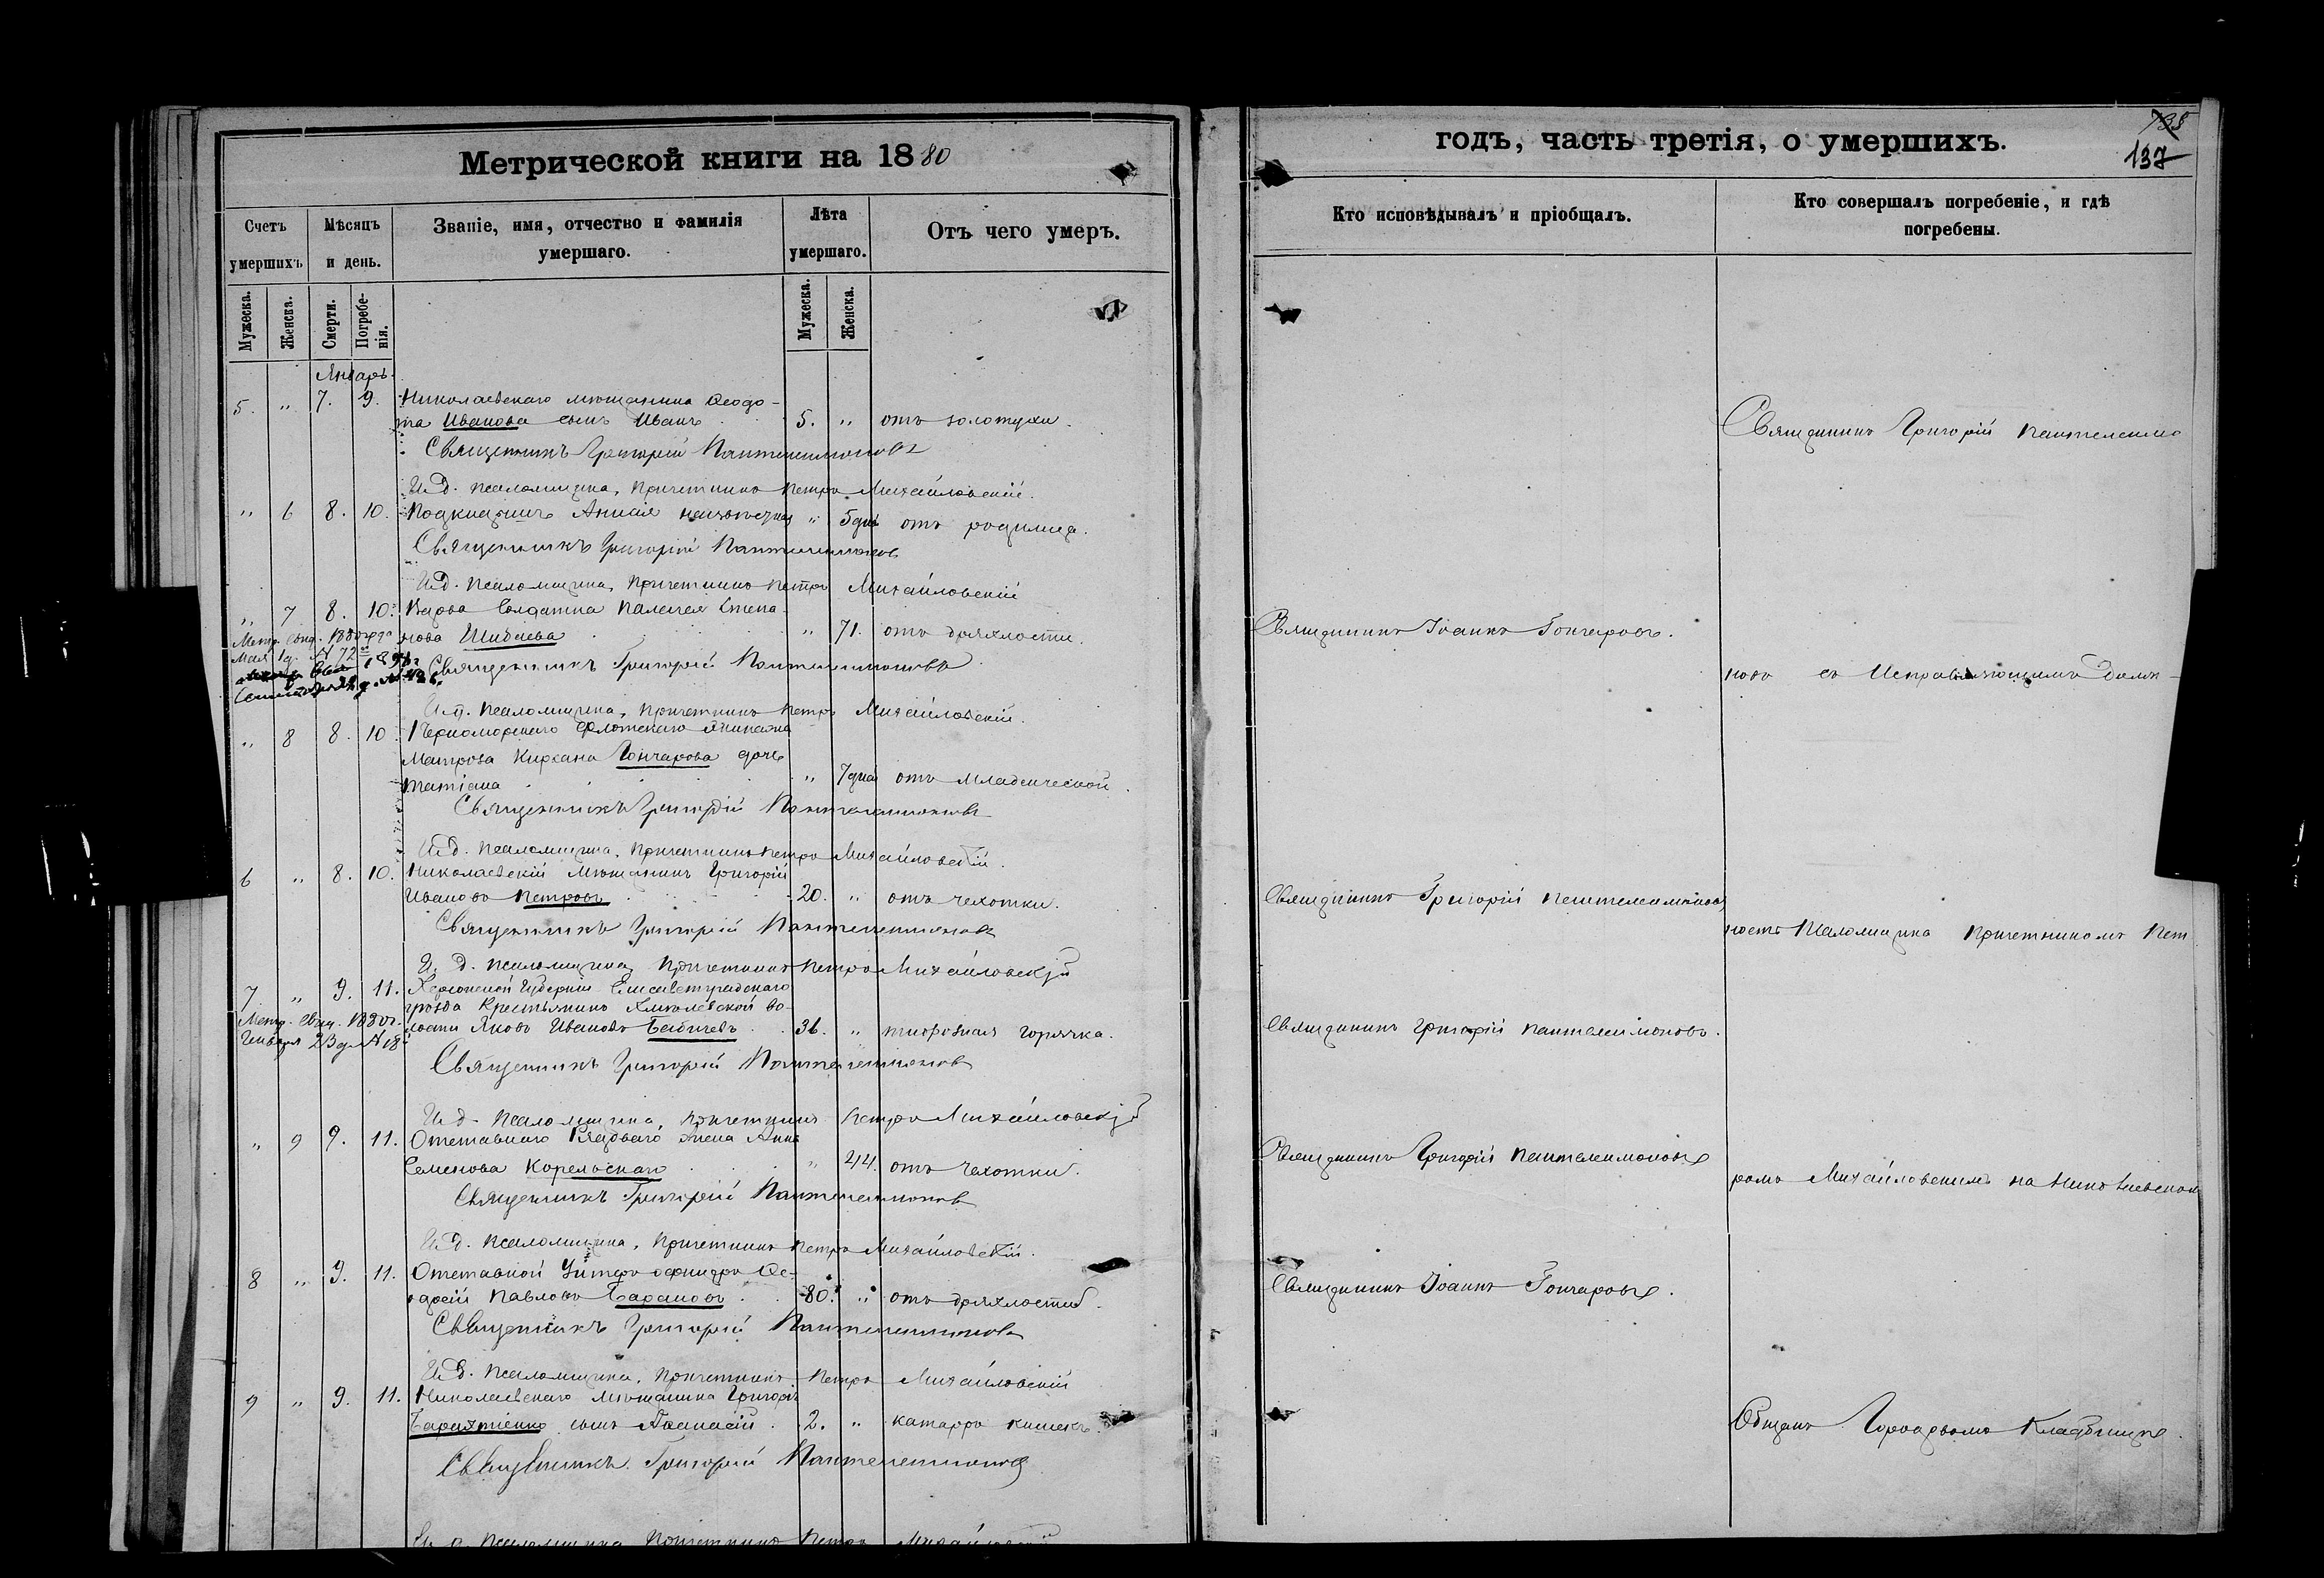 Метрической книги на 1880
Счетъ умершихъ
Мѣсяцъ и день.
Званіе, имя, отчество и фамилія умершаго.
Лѣта умершаго.
Отъ чего умеръ.
Мужеска.
Женска.
Смерти.
Погребенія.
Мужеска.
Женска.
Январь.
5. " 7. 9. Николаевскаго мѣщанина Ѳеодо-
та Иванова сынъ Иванъ 5. " отъ золотухи.
Священникъ Григорій Пантелеимоновъ
И.д. псаломщика, причетникъ Петръ Михайловскій.
" 6 8. 10. Подкидышъ Анисія " 5 дней отъ родимца.
Священникъ Григорій Пантелеимоновъ
И.д. псаломщика, причетникъ Петръ Михайловскій
" 7 8. 10. Вдова Солдатка Пелагея Степа-
нова Шибаева " 71. отъ дряхлости.
Метр. свид. 1880 года
Мая 1 д. № 72
Священникъ Григорій Пантелеимоновъ
И.д. псаломщика, причетникъ Петръ Михайловскій.
" 8 8. 10. Черноморскаго флотскаго экипажа
матроса Кирсана Гончарова дочь
Татіана " 7 дней отъ младенческой.
Священникъ Григорій Пантелеимоновъ
И.д. псаломщика, причетникъ Петръ Михайловскій.
6 " 8. 10. Николаевскій мѣщанинъ Григорій
Ивановъ Петровъ 20. " отъ чахотки.
Священникъ Григорій Пантелеимоновъ
И.д. псаломщика, причетникъ Петръ Михайловскій
7. " 9. 11. Херсонской Губерніи Елисаветградскаго
уѣзда крестьянинъ во-
лости Яковъ Ивановъ Бабичевъ 36. " тифозная горячка.
Метр. свид. 1880 г.
Января 23 д. № 18
Священникъ Григорій Пантелеимоновъ
И.д. псаломщика, причетникъ Петръ Михайловскій
" 9 9. 11. Отставнаго Рядоваго жена Анна
Семенова Корельская " 44. отъ чахотки.
Священникъ Григорій Пантелеимоновъ
И.д. псаломщика, причетникъ Петръ Михайловскій.
8 " 9. 11. Отставной Унтеръ офицеръ Ѳе-
Павловъ Барановъ 80. " отъ дряхлости.
Священникъ Григорій Пантелеимоновъ
И.д. псаломщика, причетникъ Петръ Михайловскій
9 " 9. 11. Николаевскаго мѣщанина Григорія
сынъ Аѳанасій 2. " катарръ кишекъ.
Священникъ Григорій Пантелеимоновъ
И.д. псаломщика причетникъ Петръ Михайловскій
годъ, часть третія, о умершихъ.
137
Кто исповѣдывалъ и пріобщалъ.
Кто совершалъ погребеніе, и гдѣ погребены.
Священникъ Григорій Пантелеимо
Священникъ Іоаннъ Гончаровъ.
новъ съ Исправляющимъ долж-
Священникъ Григорій Пантелеимоновъ
ность Псаломщика Причетникомъ Пет
Священникъ Григорій Пантелеимоновъ.
Священникъ Григорій Пантелеимоновъ
ромъ Михайловскимъ на Николаевском
Священникъ Іоаннъ Гончаровъ.
Общемъ Городскомъ Кладбищѣ.